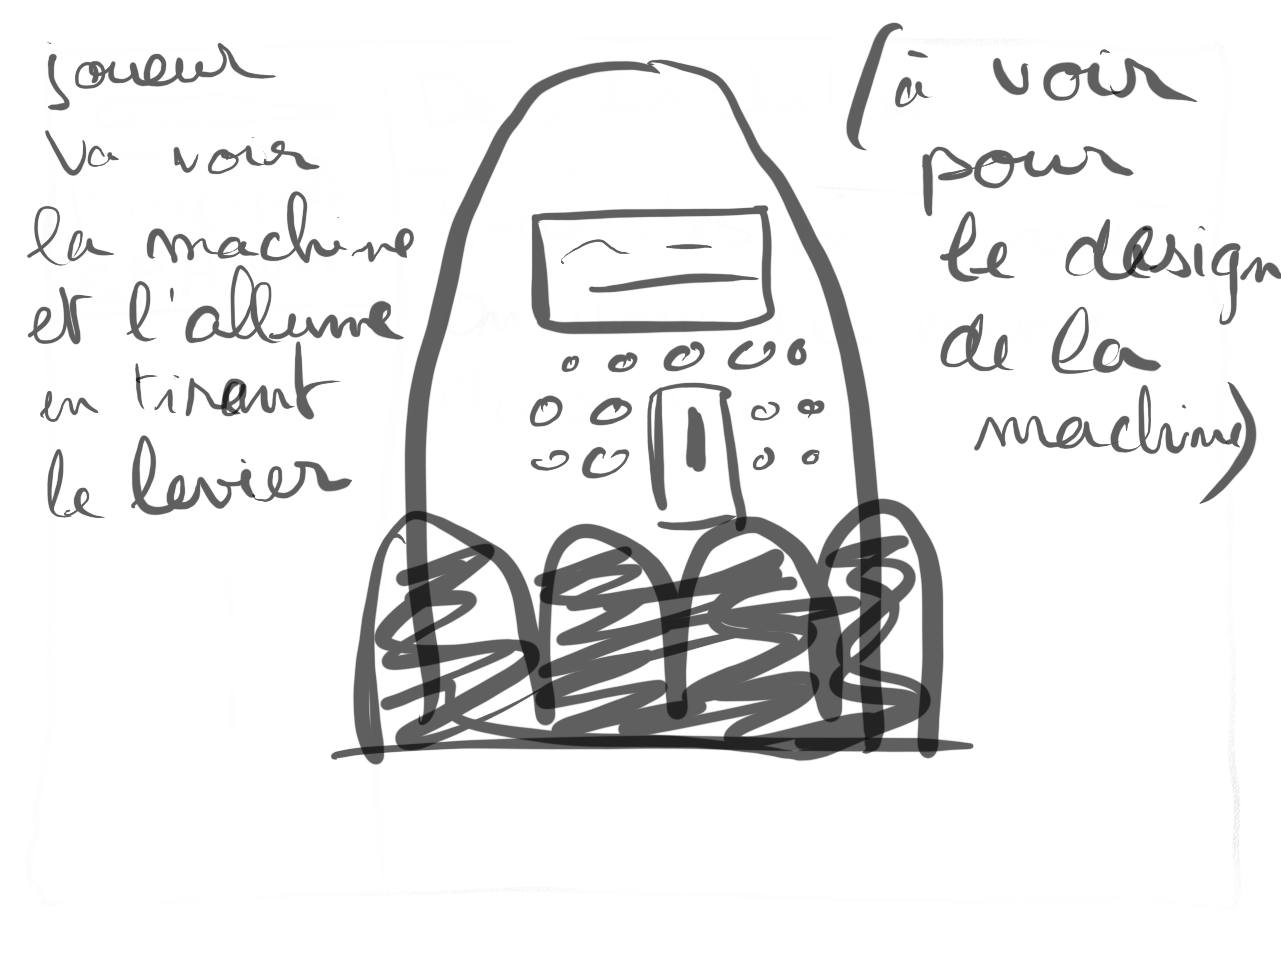 joueur
va voir
la machine
et l'allume
en tirant
le levier
(à voir
pour
le design
de la
machine)